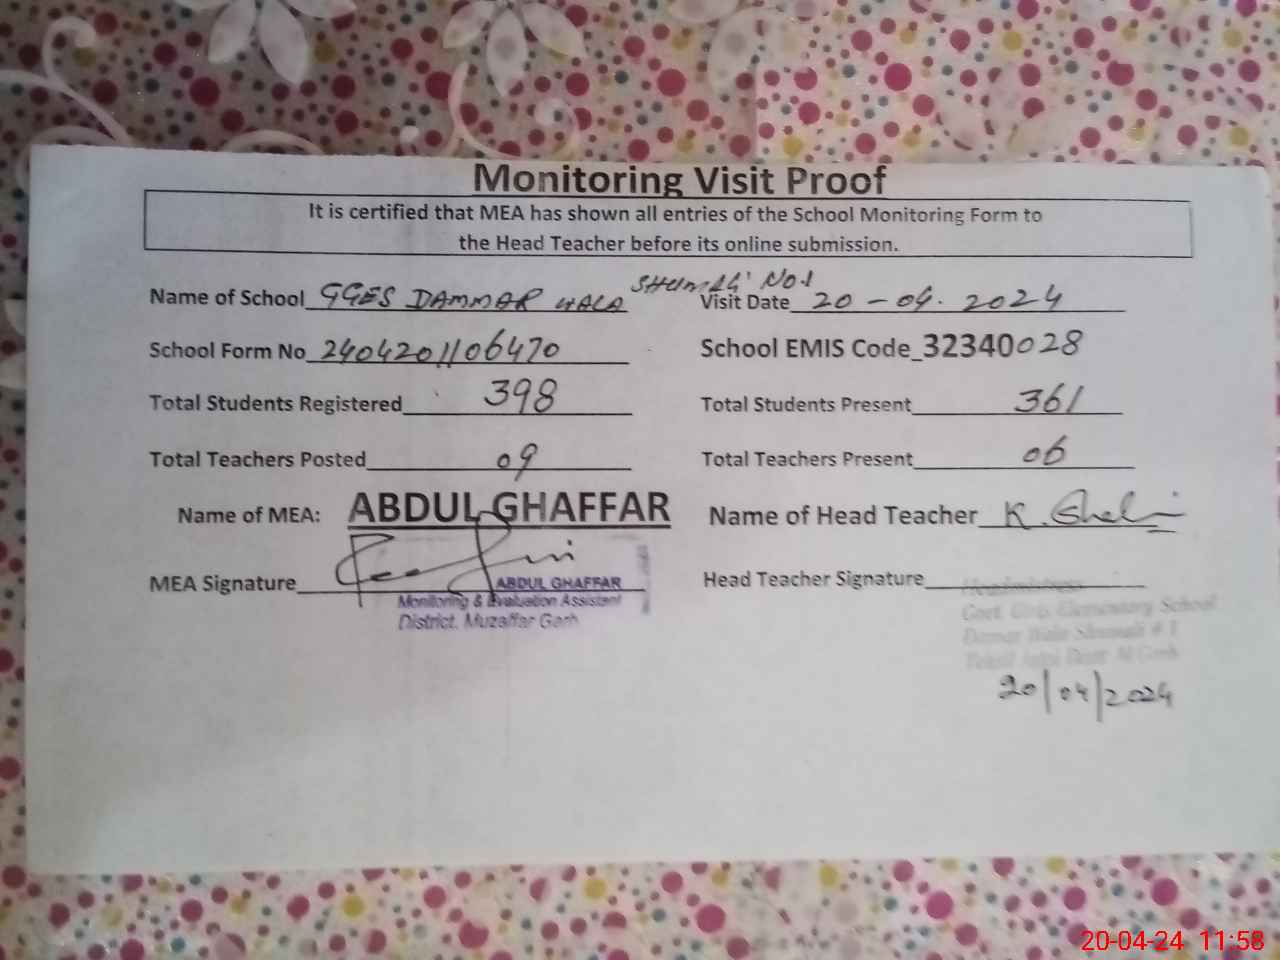 Monitoring Visit Proof
It is certified that MEA has shown all entries of the School Monitoring Form to
the Head Teacher before its online submission.
Name of School GGES DAMMAR WALA SHUMALI No.1
Visit Date 20-04.2024
School Form No 2404201106470
School EMIS Code_32340028
Total Students Registered 398
Total Students Present 361
Total Teachers Posted 09
Total Teachers Present 06
Name of MEA: ABDUL GHAFFAR
Name of Head Teacher K.
MEA Signature
ABDUL GHAFFAR
Monitoring & Evaluation Assistant
District. Muzaffar Garh
Head Teacher Signature
Headmistress
Govt. Girls Elementary School
Damar Wala Shumali # 1
20/04/2024
20-04-24 11:58